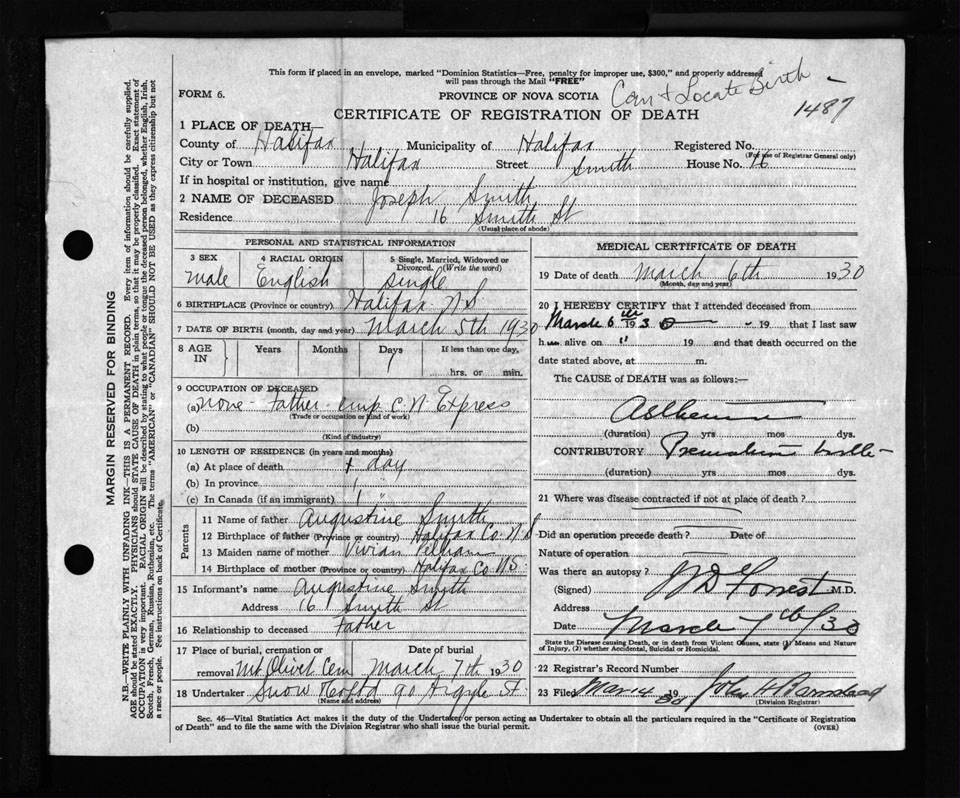 This form if placed in an envelope, marked "Dominion Statistics—Free, penalty for improper use, $300," and properly addressed
will pass through the Mail "FREE"
Can't Locate Birth –
FORM 6.
PROVINCE OF NOVA SCOTIA
1487
CERTIFICATE OF REGISTRATION OF DEATH
1 PLACE OF DEATH
County of Halifax Municipality of Halifax Registered No.
(For use of Registrar General only)
City or Town Halifax Street Smith House No. 16
If in hospital or institution, give name
2 NAME OF DECEASED Joseph Smith
Residence 16 Smith St
(Usual place of abode)
PERSONAL AND STATISTICAL INFORMATION
3 SEX 4 RACIAL ORIGIN 5 Single, Married, Widowed or
Divorced. (Write the word)
male English single
6 BIRTHPLACE (Province or country) Halifax NS
7 DATE OF BIRTH (month, day and year) March 5th 1930
8 AGE IN Years Months Days If less than one day,
hrs. or min.
9 OCCUPATION OF DECEASED
(a) none - Father - emp C.N Express
(Trade or occupation or kind of work)
(b)
(Kind of industry)
10 LENGTH OF RESIDENCE (in years and months)
(a) At place of death 1 day
(b) In province "
(c) In Canada (if an immigrant) "
Parents
11 Name of father Augustine Smith
12 Birthplace of father (Province or country) Halifax Co. N.S
13 Maiden name of mother Vivian Pelham
14 Birthplace of mother (Province or country) Halifax Co NS
15 Informant's name Augustine Smith
Address 16 Smith St
16 Relationship to deceased Father
17 Place of burial, cremation or Date of burial
removal Mt Olivet Cem March 7th 1930
18 Undertaker Snow Co Ltd 90 Argyle St
(Name and address)
MEDICAL CERTIFICATE OF DEATH
19 Date of death March 6th 1930
(Month, day and year)
20 I HEREBY CERTIFY that I attended deceased from
March 6th 1930 19 that I last saw
h alive on " 19 and that death occurred on the
date stated above, at m.
The CAUSE of DEATH was as follows:—
Asthenia
(duration) yrs mos dys.
CONTRIBUTORY Premature
(duration) yrs mos dys.
21 Where was disease contracted if not at place of death?
Did an operation precede death? Date of
Nature of operation
Was there an autopsy?
(Signed) Forrest M.D.
Address
Date March 7th/30
State the Disease causing Death, or in death from Violent Causes, state (1) Means and Nature
of Injury, (2) whether Accidental, Suicidal or Homicidal.
22 Registrar's Record Number
23 Filed Mar 14 1930 John H Barnstead
(Division Registrar)
Sec. 46—Vital Statistics Act makes it the duty of the Undertaker or person acting as Undertaker to obtain all the particulars required in the "Certificate of Registration
of Death" and to file the same with the Division Registrar who shall issue the burial permit.
(OVER)
MARGIN RESERVED FOR BINDING
N.B.—WRITE PLAINLY WITH UNFADING INK—THIS IS A PERMANENT RECORD. Every item of information should be carefully supplied.
AGE should be stated EXACTLY. PHYSICIANS should state CAUSE OF DEATH in plain terms, so that it may be properly classified. Exact statement of
OCCUPATION is very important. RACIAL ORIGIN will be described by stating to what people or tongue the deceased person belonged, whether English, Irish,
Scotch, French, German, Russian, Ruthenian, etc. The terms "AMERICAN" or "CANADIAN" SHOULD NOT BE USED as they express citizenship but not
a race or people. See instructions on back of Certificate.